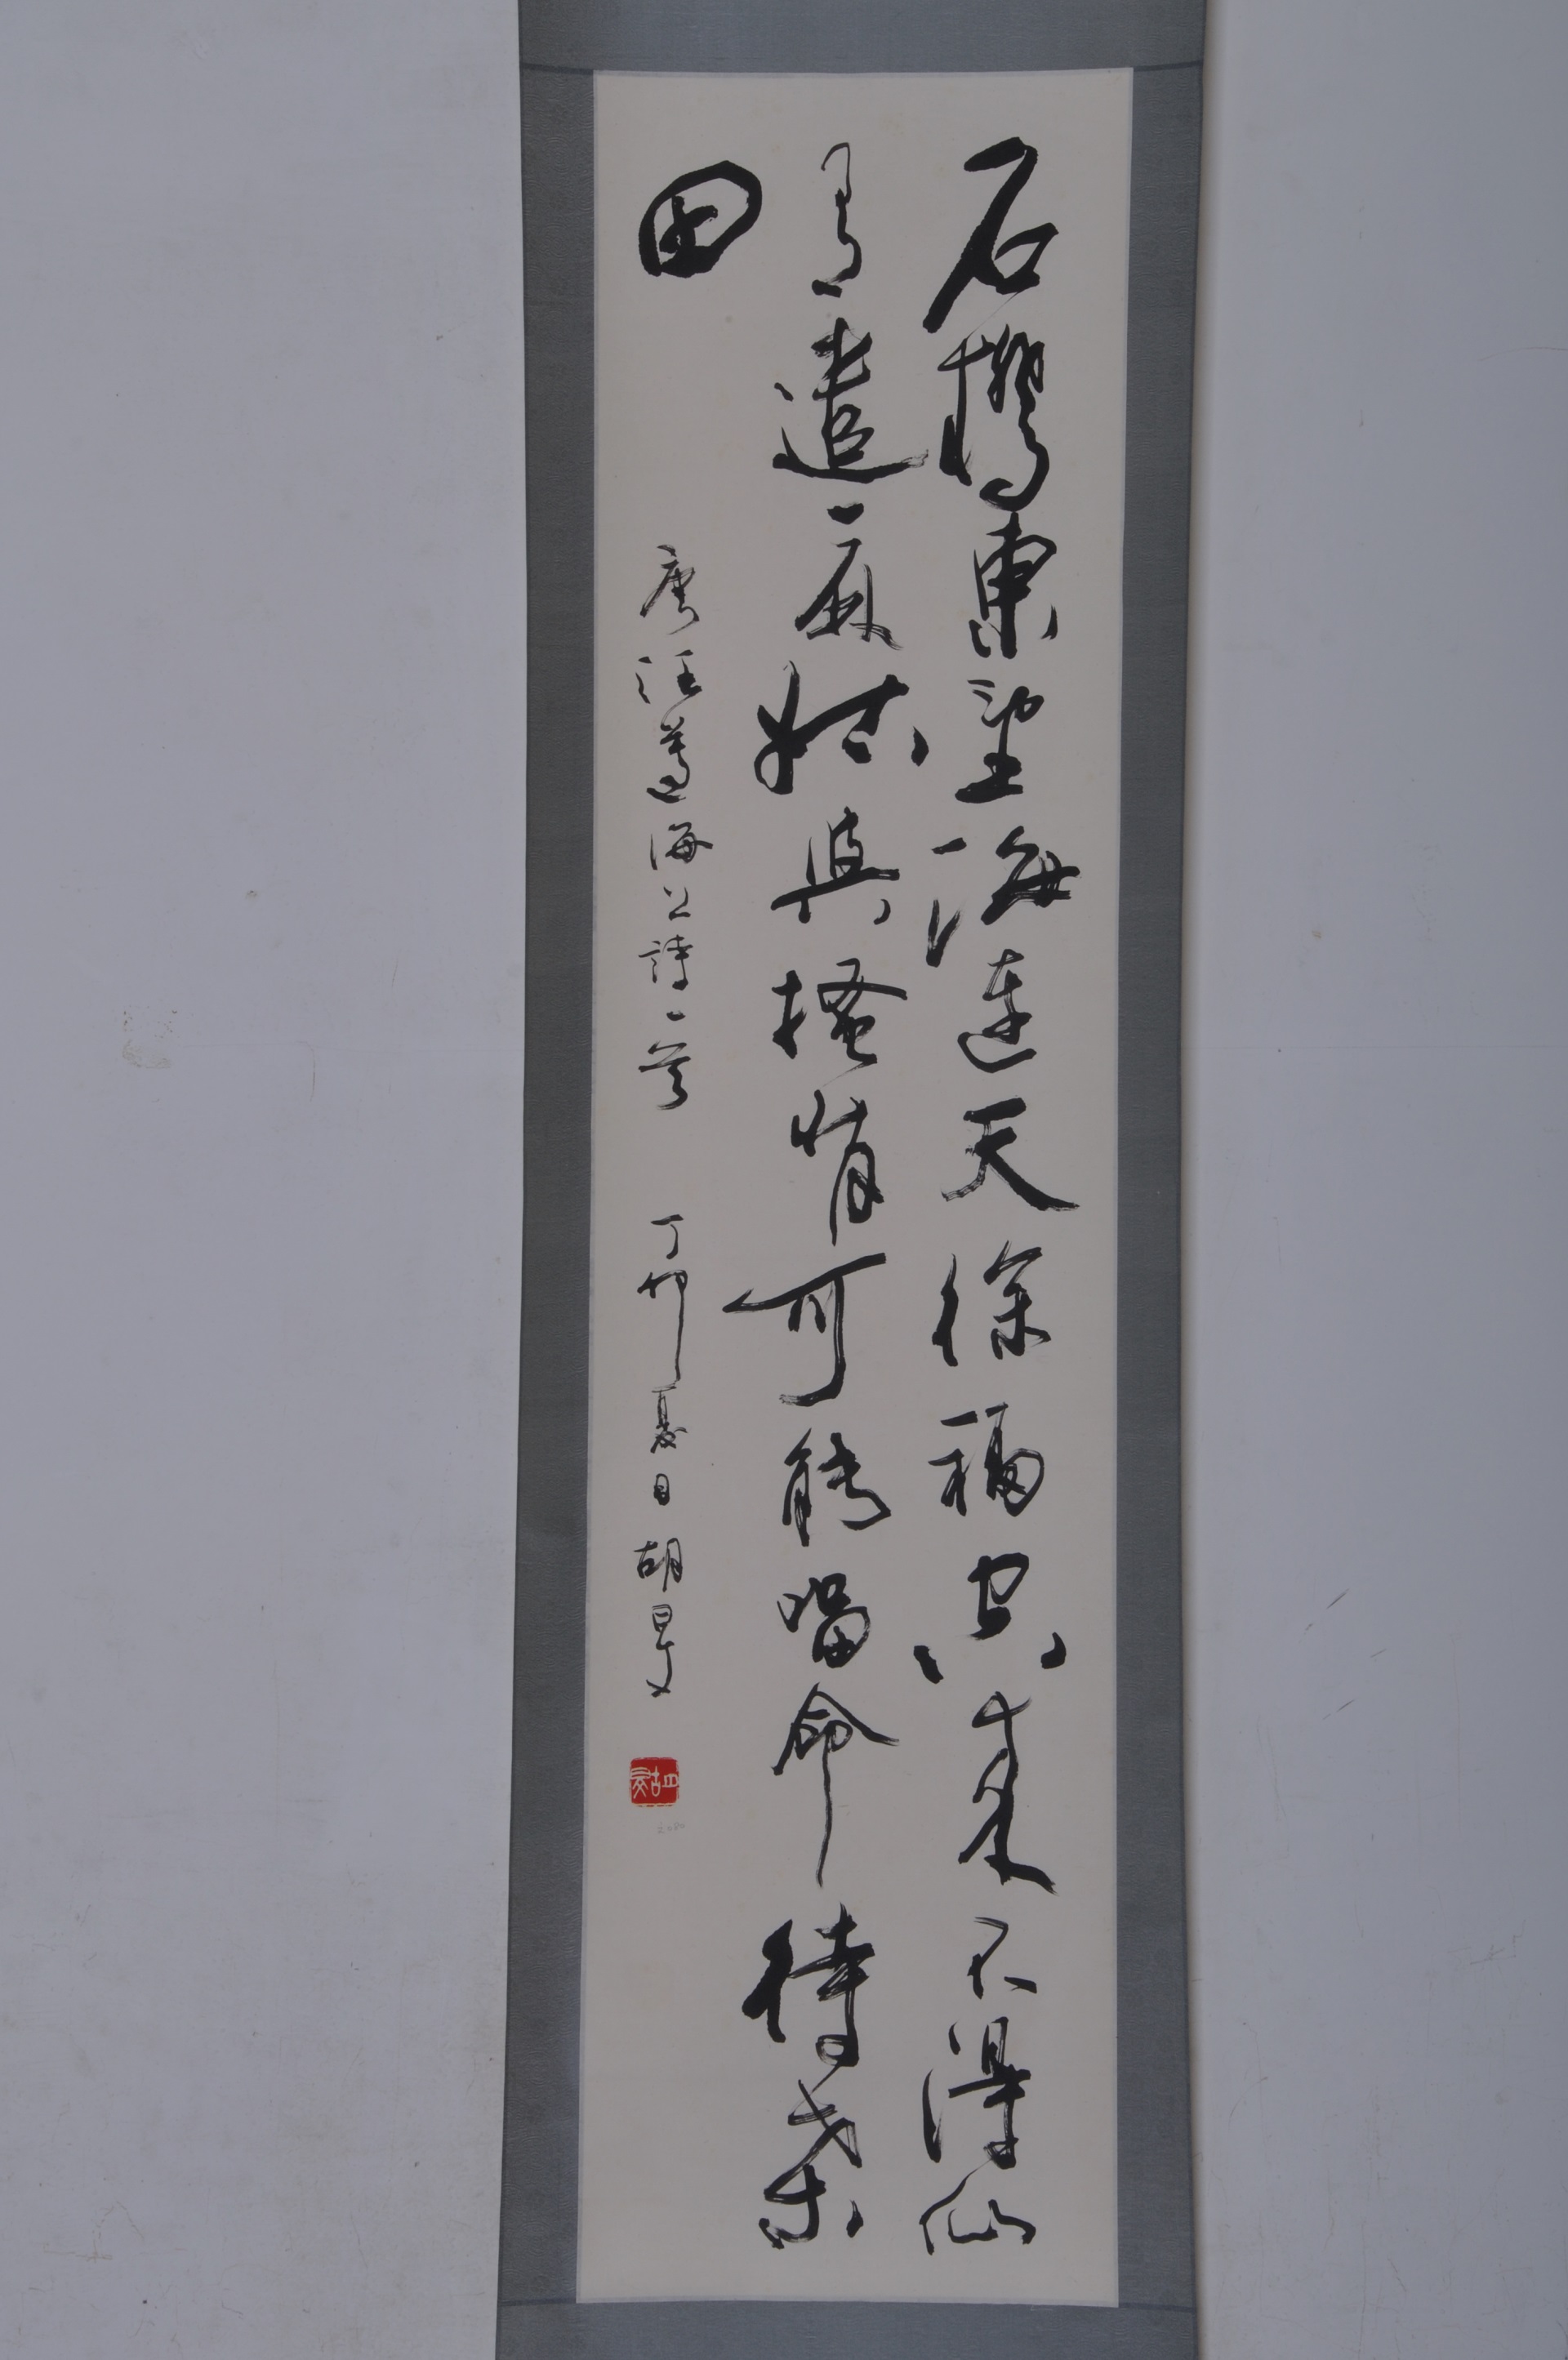 石橋東望海連天徐福空來不得仙
直遣麻姑與搔背可能留命待桑
田 唐汪遵海上詩一首 丁卯夏日 胡